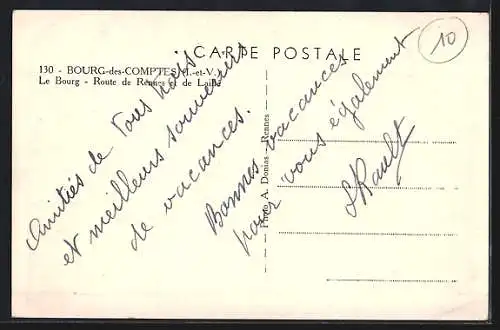 CARTE POSTALE
10
130 - BOURG-des-COMPTES (I.-et-V.)
Le Bourg - Route de Rennes et de Laillé
Amitiés de tous trois
et meilleurs souvenirs
de vacances.
Bonnes vacances
pour vous également
Photo A. Donias - Rennes
Rault